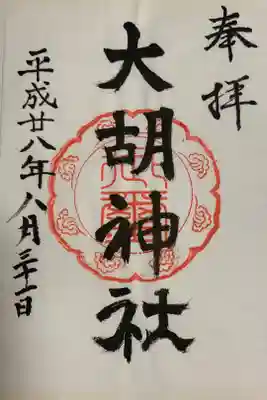 奉拝
大胡神社
平成廿八年八月三十一日